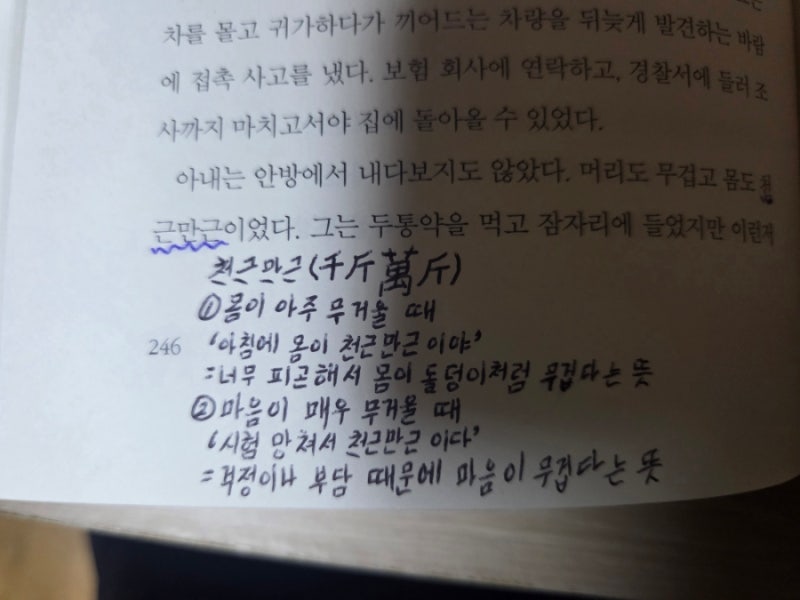 차를 몰고 귀가하다가 끼어드는 차량을 뒤늦게 발견하는 바람
에 접촉 사고를 냈다. 보험 회사에 연락하고, 경찰서에 들러 조
사까지 마치고서야 집에 돌아올 수 있었다.
아내는 안방에서 내다보지도 않았다. 머리도 무겁고 몸도 천
근만근이었다. 그는 두통약을 먹고 잠자리에 들었지만 이런저
천근만근(千斤萬斤)
①몸이 아주 무거울 때
246 '아침에 몸이 천근만근이야'
=너무 피곤해서 몸이 돌덩이처럼 무겁다는 뜻
②마음이 매우 무거울 때
'시험 망쳐서 천근만근이다'
=걱정이나 부담 때문에 마음이 무겁다는 뜻